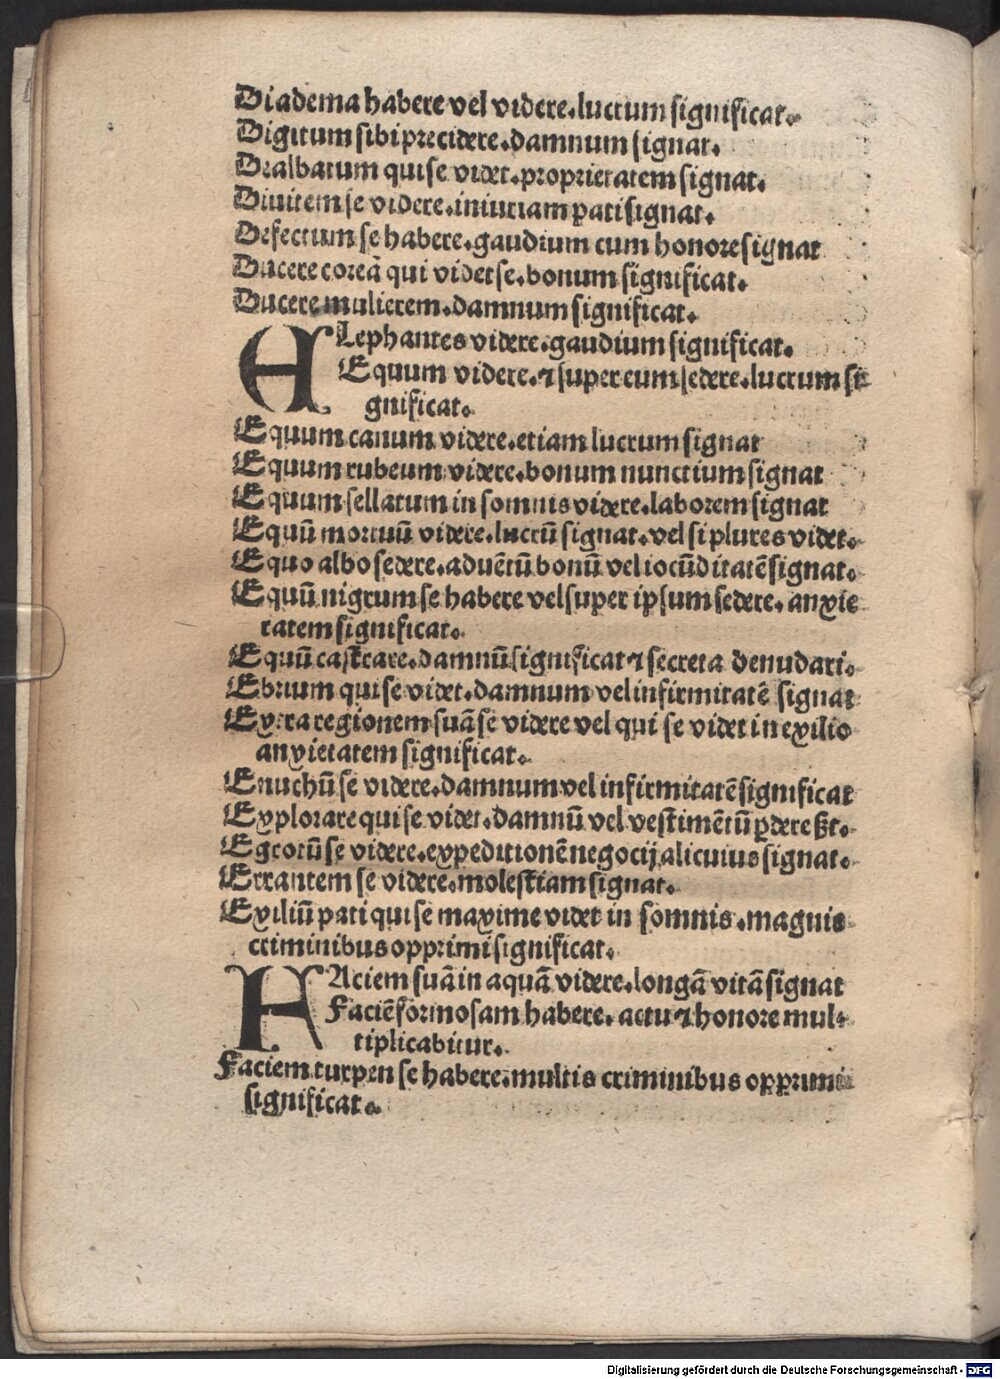 Diadema habere vel videre.lucrum significat.
Digitum sibi precidere.damnum signat.
Dealbatum qui se videt.proprietatem signat.
Diuitem se videre.iniuriam pati signat.
Defectum se habere.gaudium cum honore signat
Ducere coreā qui videt se.bonum significat.
Ducere mulierem.damnum significat.
ELephantes videre.gaudium significat.
Equum videre.⁊ super eum sedere.lucrum si
gnificat.
Equum canum videre.etiam lucrum signat
Equum rubeum videre.bonum nunctium signat
Equum sellatum in somnis videre.laborem signat
Equū mortuū videre.lucrū signat.vel si plures videt.
Equo albo sedere.aduētū bonū vel iocūditatē signat.
Equū nigrum se habere vel super ipsum sedere.anxie
tatem significat.
Equū castrare.damnū significat ⁊ secreta denudari.
Ebrium qui se videt.damnum vel infirmitatē signat
Extra regionem suā se videre vel qui se videt in exilio
anxietatem significat.
Enuchū se videre.damnum vel infirmitatē significat
Explorare qui se videt.damnū vel vestimētū ꝑdere ßt.
Egrotū se videre.expeditionē negocij alicuius signat.
Errantem se videre.molestiam signat.
Exiliū pati qui se maxime videt in somnis.magnis
criminibus opprimi significat.
FAciem suā in aquā videre.longā vitā signat
Faciē formosam habere.actu ⁊ honore mul-
tiplicabitur.
Faciem turpen se habere.multis criminibus opprimi
significat.
Digitalisierung gefördert durch die Deutsche Forschungsgemeinschaft - DFG